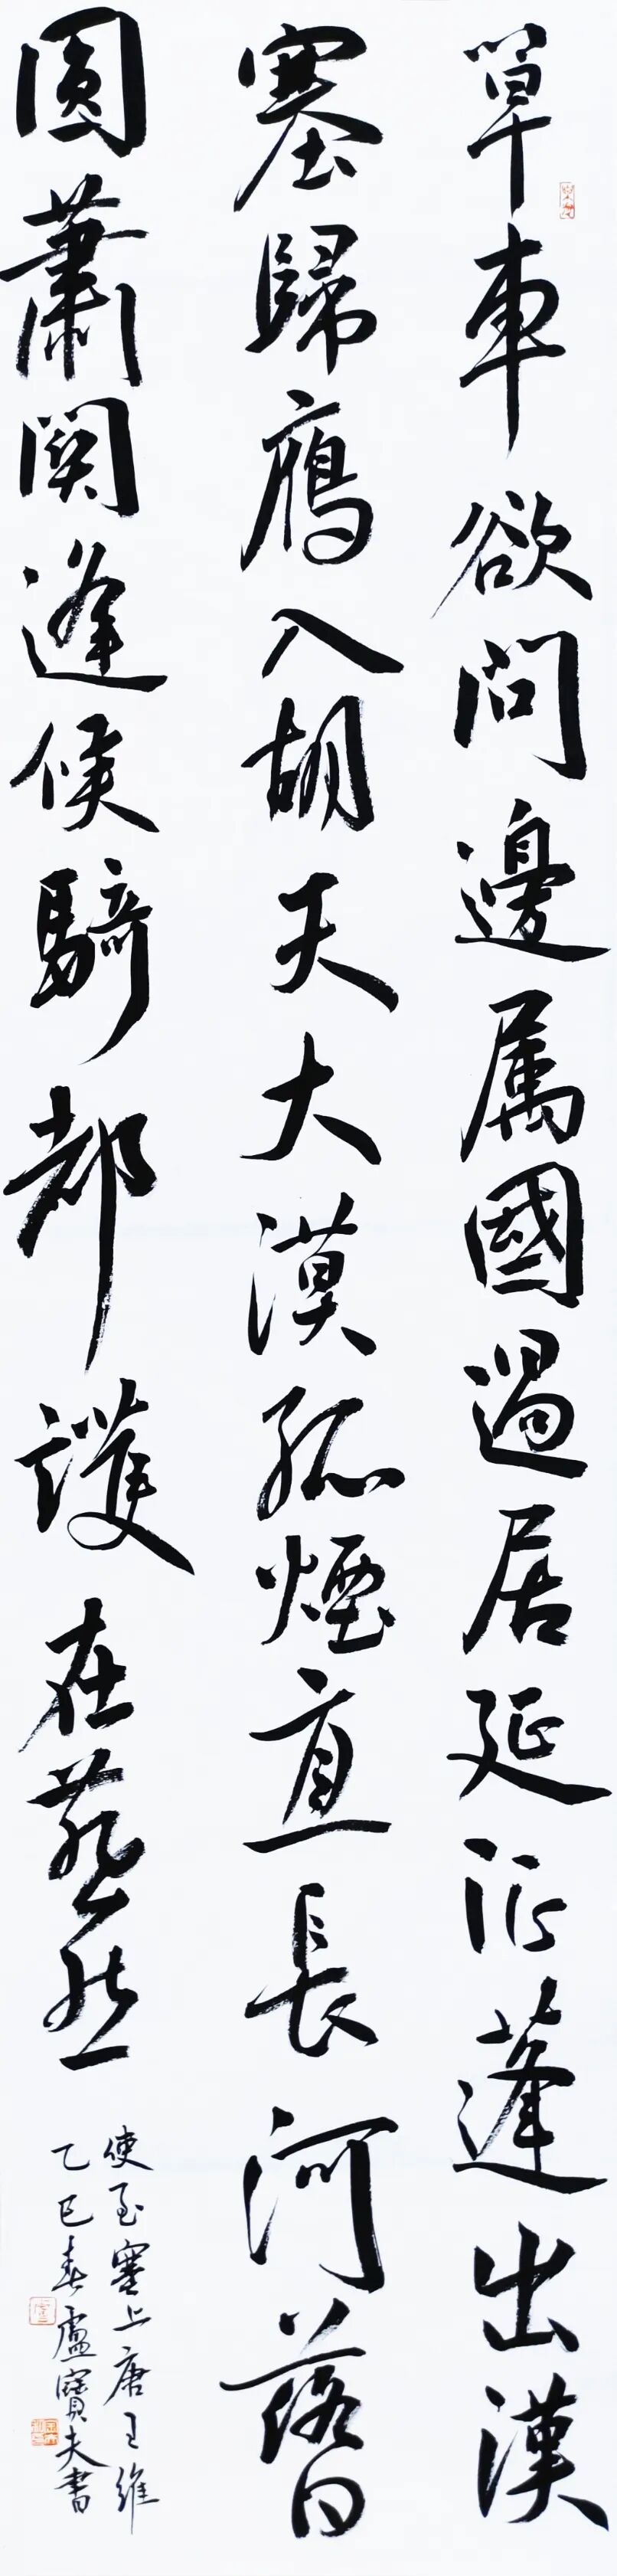 單車欲問邊属國過居延征蓬出漢
塞歸鴈入胡天大漠孤煙直長河落日
圓蕭関逢候騎都護在燕然
使至塞上唐王維
乙巳春盧寶夫書